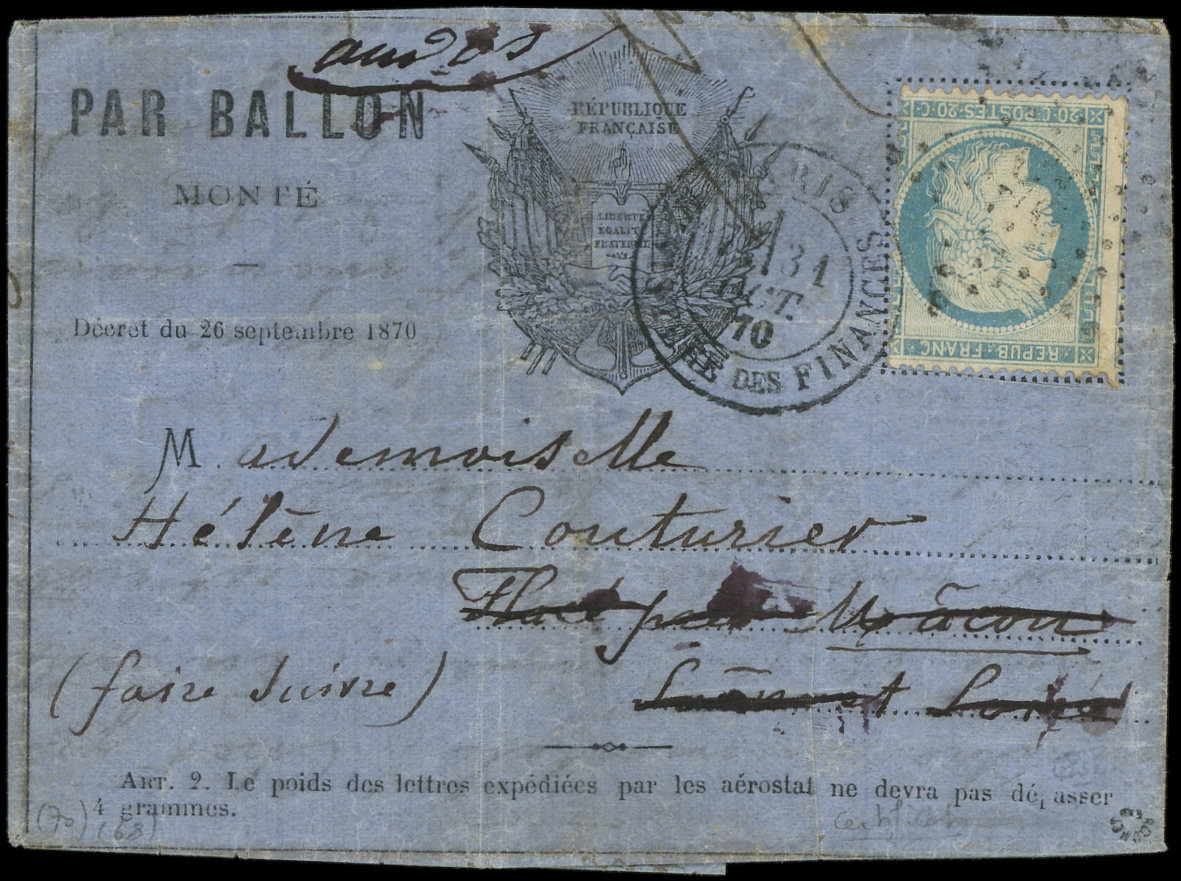 PAR BALLON
MONTÉ
Décret du 26 septembre 1870
RÉPUBLIQUE
FRANÇAISE
LIBERTÉ
ÉGALITÉ
FRATERNITÉ
PARIS
31
OCT.
70
DES FINANCES
20 C. POSTES 20 C
REPUB. FRANC.
Mademoiselle
Hélène Couturier
Flacé par Mâcon
(faire suivre)
Saône et Loire
ART. 2. Le poids des lettres expédiées par les aérostat ne devra pas dépasser
4 grammes.
(70)
(68)
certificat